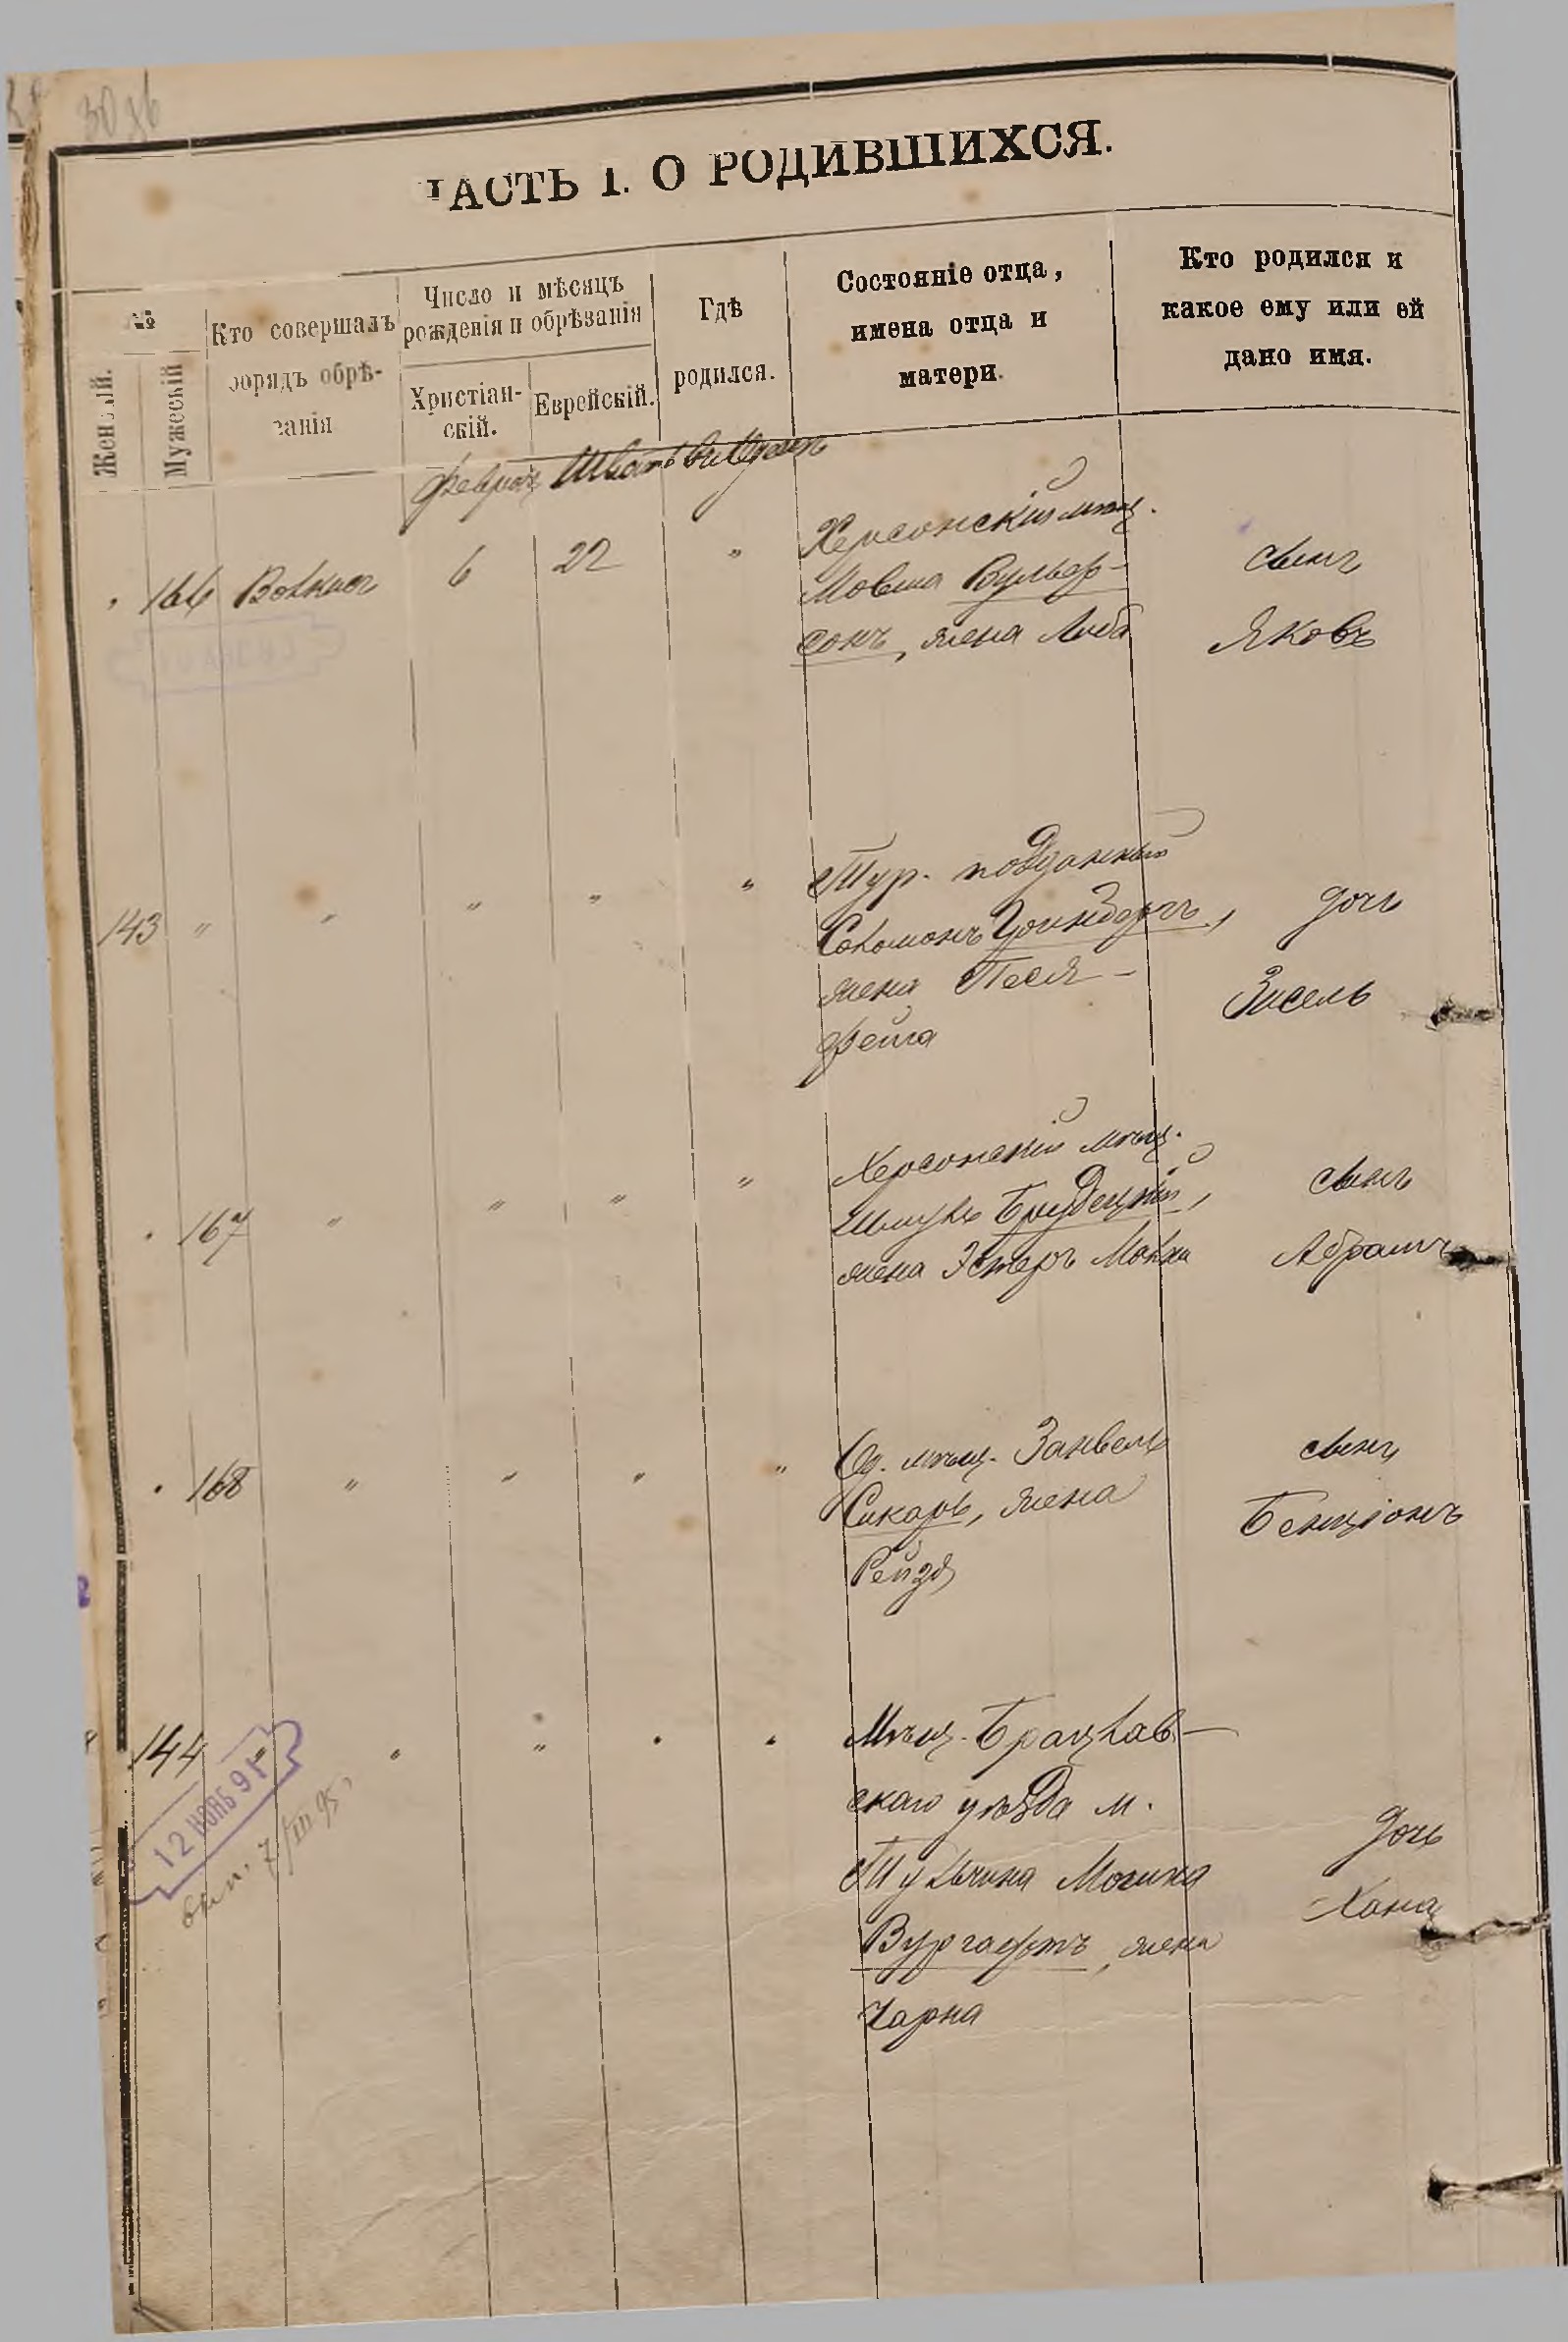 ЧАСТЬ I. О РОДИВШИХСЯ.
№
Женскій.
Мужескій
Кто совершалъ
обрядъ обрѣ-
занія
Число и мѣсяцъ
рожденія и обрѣзанія
Христіан-
скій.
Еврейскій.
Гдѣ
родился.
Состояніе отца,
имена отца и
матери.
Кто родился и
какое ему или ей
дано имя.
Шватъ
166
6
22
"
Херсонскій мѣщ.
Мовша Вульфр-
сонъ, жена Люба
сынъ
Яковъ
143 " " " " "
Тур. подданный
Соломонъ
жена Песя-
Фейга
дочь
Зисель
167 " " " "
Херсонскій мѣщ.
Шмуль Бродецкій,
жена Эстеръ Малка
сынъ
Абрамъ
168 " " " "
Од. мѣщ. Занвель
Сикаръ, жена
Рейзя
сынъ
Бенціонъ
144 " " " " "
Мѣщ. Брацлав-
скаго уѣзда м.
Тульчина
Вургафтъ, жена
Чарна
дочь
Хана
7/III 95